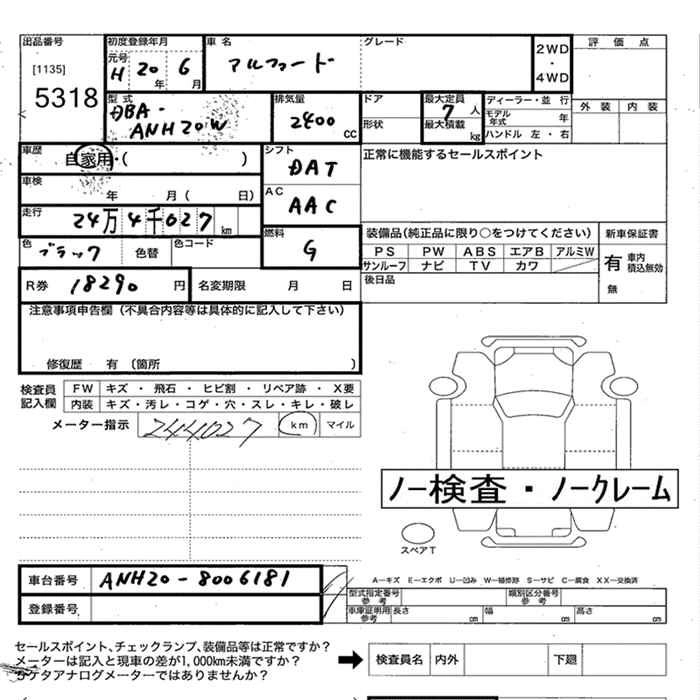 出品番号
[1135]
5318
初度登録年月
元号
H 20 年 6 月
車名
アルファード
グレード
2WD
・
4WD
評価点
外装 内装
型式
DBA-
ANH20W
排気量
2400 CC
ドア
形状
最大定員
7 人
最大積載
kg
ディーラー・並行
モデル年式 年
ハンドル 左・右
車歴
自家用・( )
シフト
DAT
正常に機能するセールスポイント
車検
年 月( 日)
AC
AAC
走行
24万4千027 km
燃料
G
装備品(純正品に限り○をつけてください)
PS PW ABS エアB アルミW
サンルーフ ナビ TV カワ
後日品
新車保証書
有 車内積込無効
無
色
ブラック
色替
色コード
R券 18290 円
名変期限 月 日
注意事項申告欄(不具合内容等は具体的に記入して下さい)
修復歴 有(箇所 )
検査員記入欄
FW キズ・飛石・ヒビ割・リペア跡・X要
内装 キズ・汚レ・コゲ・穴・スレ・キレ・破レ
メーター指示 244027 km マイル
ノー検査・ノークレーム
スペアT
車台番号 ANH20-8006181
登録番号
A―キズ E―エクボ U―凹み W―補修跡 S―サビ C―腐食 XX―交換済
型式指定番号 参考
類別区分番号 参考
車庫証明用 参考
長さ cm 幅 cm 高さ cm
セールスポイント、チェックランプ、装備品等は正常ですか?
メーターは記入と現車の差が1,000km未満ですか?
5ケタアナログメーターではありませんか?
検査員名 内外 下廻